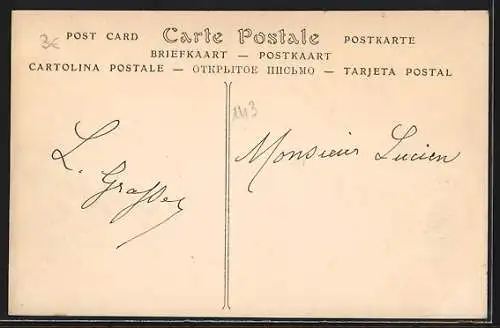 3€
POST CARD Carte Postale POSTKARTE
BRIEFKAART — POSTKAART
CARTOLINA POSTALE — ОТКРЫТОЕ ПИСЬМО — TARJETA POSTAL
143
L.
Monsieur Lucien